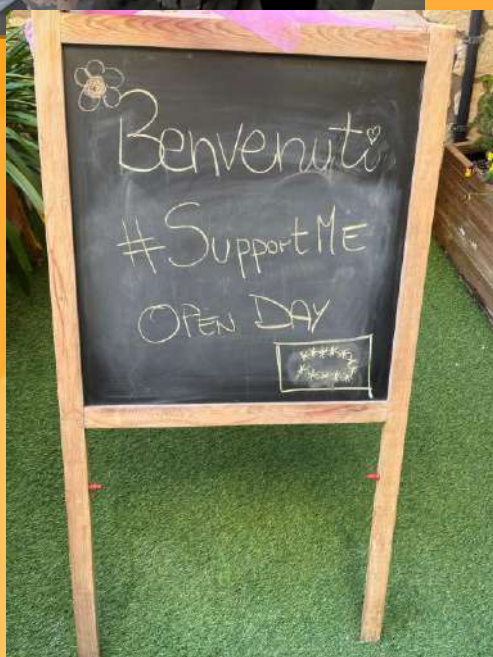 Benvenuti
#SupportME
OPEN DAY